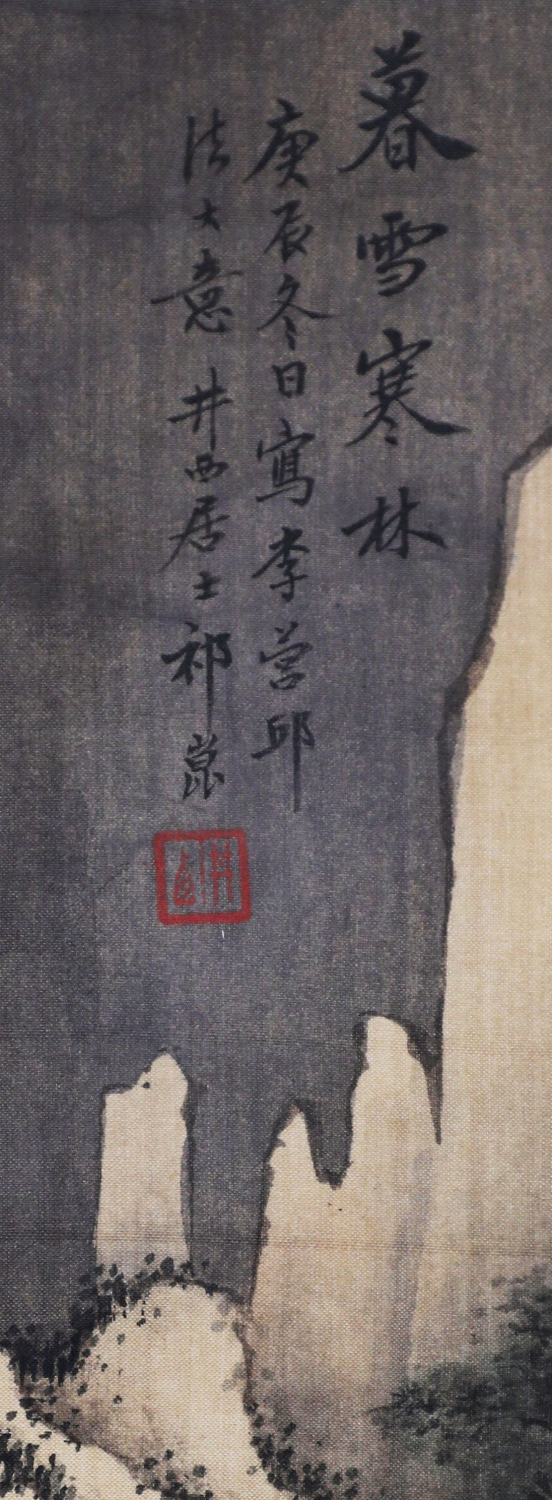 暮雪寒林
庚辰冬日寫李營邱
法大意井西居士祁崑
井西